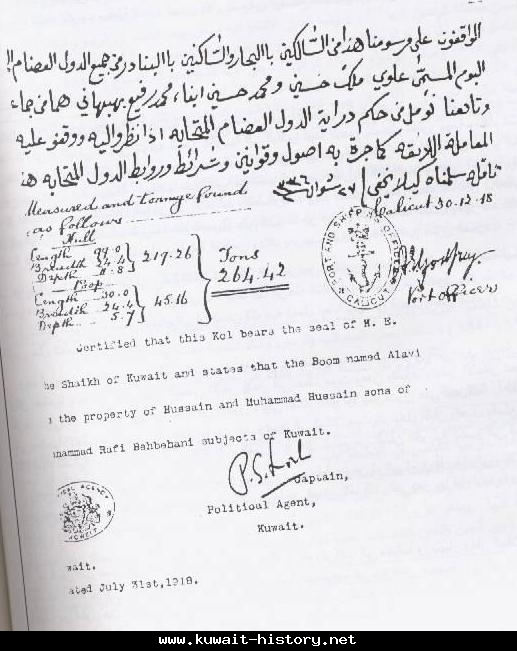 الواقفون على مرسومنا هذا من السالكين بالبحار والساكنين بالبنادر من جميع الدول العضام
البوم المسمى علوي ملك حسين ومحمد حسين ابناء محمد رفيع بهبهاني هما من
وتابعنا نؤمل من حكم دراية الدول العضام المتحابه اذا نظر واليه ووقفو عليه
المعاملة اللائقه كما جرة به اصول وقوانين وشرائط وروابط الدول المتحابه
٢٧ شوال ١٣٣٦
Measured and tonnage found
as follows
Calicut 30.12.18
Hull
Length 99.0
Breadth 24.4
Depth 11.8
219.26
Tons
264.42
Poop
Length 30.0
Breadth 24.4
Depth 5.7
45.16
PORT AND SHIPPING OFFICE
CALICUT
Port Officer
Certified that this Kol bears the seal of H. E.
he Shaikh of Kuwait and states that the Boom named Alavi
the property of Hussain and Muhammad Hussain sons of
hammad Rafi Behbehani subjects of Kuwait.
Captain,
Political Agent,
Kuwait.
AGENCY
KOWEIT
wait.
ated July 31st,1918.
www.kuwait-history.net